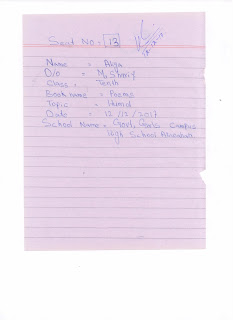 Seat No = 13
Name = Aiza
D/o = M. Sharif
Class = Tenth
Book name = Poems
Topic = Humd
Date = 12/12/2017
School Name = Govt. Girls Campus
High School